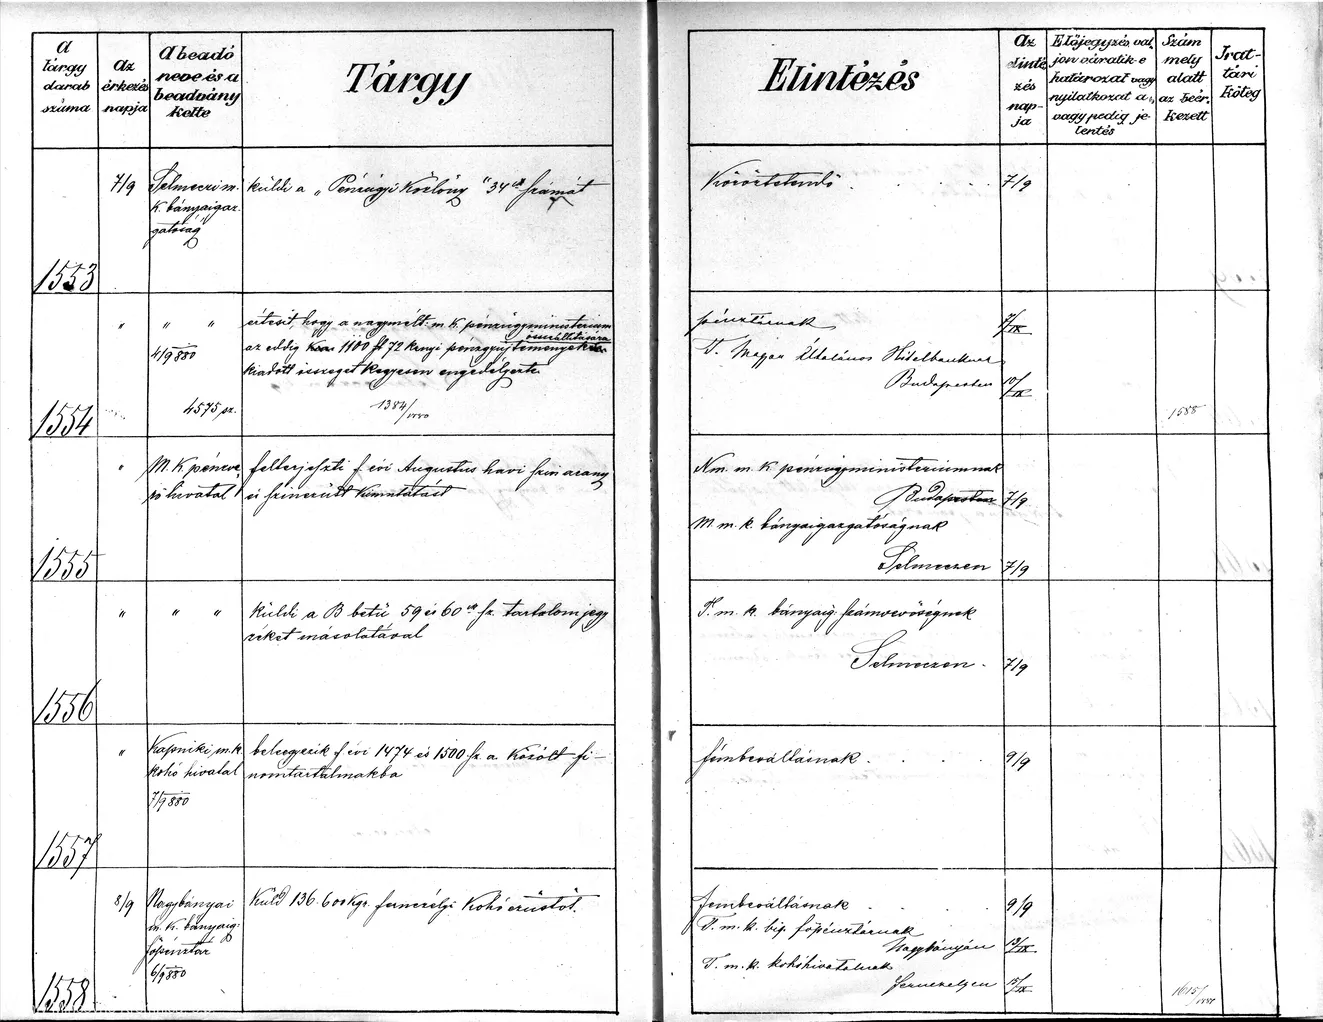 A tárgy darab száma
Az érkezés napja
A beadó neve és a beadvány kelte
Tárgy
Elintézés
Az elintézés napja
Előjegyzés, valjon váratik-e határozat vagy nyilatkozat a, vagy pedig jelentés
Szám mely alatt az beérkezett
Irattári köteg
1553
7/9
Selmeczi m.
k. bányaigaz-
gatóság
küldi a „Pénzügyi Közlöny" 34ik számát
Köröztetendő
7/9
1554
" " "
4/9 880
4575 sz.
értesít, hogy a nagymélt. m. k. pénzügyministerium
összeállitására
az eddig 1100 ft 72 krnyi pénzgyüjtemények
kiadott összeget kegyesen engedélyezte
1384/1880
pénztárnak
7/IX
T. Magyar Általános Hitelbanknak
Budapesten
10/IX
1588
1555
"
M. k. pénzve-
rő hivatal
felterjeszti f. évi Augustus havi szin arany
és szinezüst kimutatást
Nm. m. k. pénzügyministeriumnak
Budapesten 7/9
M. m. k. bányaigazgatóságnak
Selmeczen 7/9
1556
" " "
küldi a B betü 59 és 60ik sz. tartalomjegy
zéket másolatával
T. m. k. bányaig. számvevőségnek
Selmeczen. 7/9
1557
"
Kapniki m. k.
kohó hivatal
7/9 880
beleegyezik f. évi 1474 és 1500 sz. a. közölt fi-
nomtartalmakba
fémbeváltásnak
9/9
1558
8/9
Nagybányai
m. k. bányaig.
főpénztár
6/9 880
Küld 136.600 Kgr. fernezélyi Kohóezüstöt.
fembeváltásnak
9/9
T. m. k. big. főpénztárnak
Nagybányán 13/IX
T. m. k. kohóhivatalnak
Fernezelyen
1615/1880